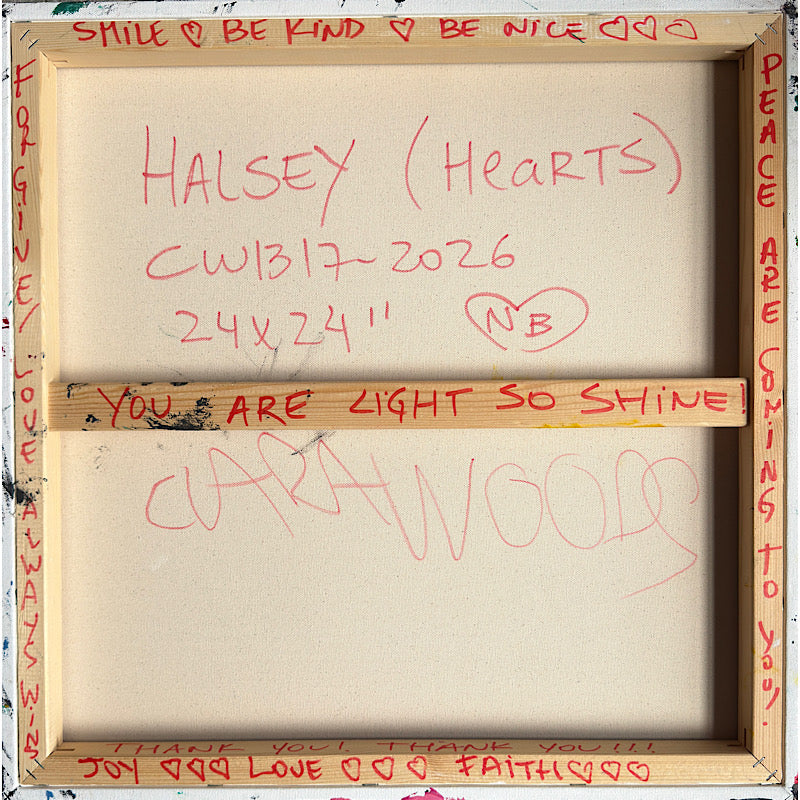 SMILE ♡ BE KIND ♡ BE NICE ♡♡♡
FORGIVE/ LOVE ALWAYS WINS
HALSEY (HeARTS)
CW1317-2026
24x24" NB
YOU ARE LIGHT SO SHINE!
CLARAWOODS
PEACE ARE COMING TO YOU!
THANK YOU! THANK YOU!!!
JOY ♡♡♡ LOVE ♡♡♡ FAITH♡♡♡